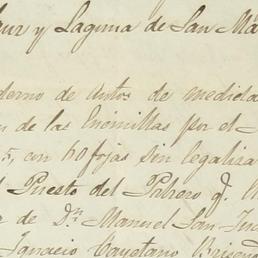 y Laguna de San Má
derno de autos de medida
de las Encinillas por el
5, con 60 fojas sin legaliza
Puesto del Potrero q.
de Dn Manuel San Jua
Ignacio Cayetano Briseñ